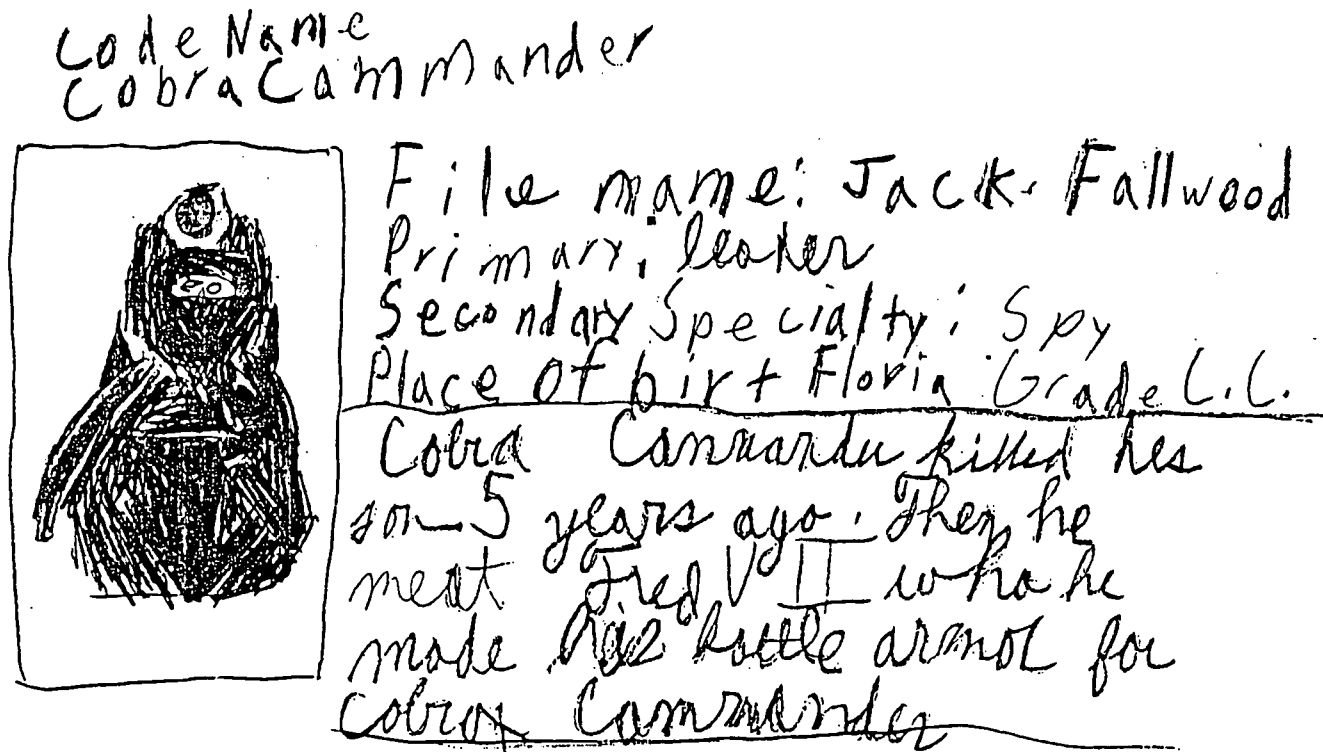 Code Name
Cobra Cammander
File name: Jack Fallwood
Primary: leader
Secondary Specialty: Spy
Place Of birt Floria Grade C.C.
Cobra Commander killed his
son 5 years ago. Then he
meat Fred VII who he
made his battle armor for
Cobra Commander